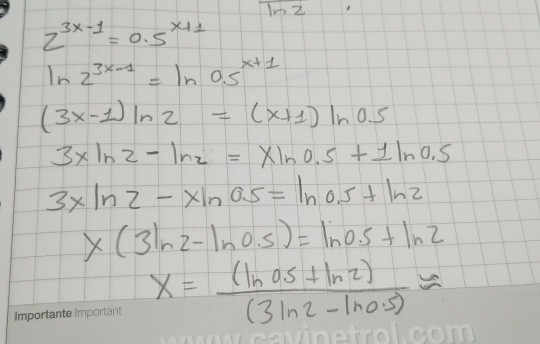 ln 2
2^{3x-1} = 0.5^{x+1}
ln 2^{3x-1} = ln 0.5^{x+1}
(3x-1) ln 2 = (x+1) ln 0.5
3x ln 2 - ln 2 = x ln 0.5 + 1 ln 0.5
3x ln 2 - x ln 0.5 = ln 0.5 + ln 2
x (3 ln 2 - ln 0.5) = ln 0.5 + ln 2
x = (ln 0.5 + ln 2) / (3 ln 2 - ln 0.5) ≈
Importante Important
www.cavipetrol.com